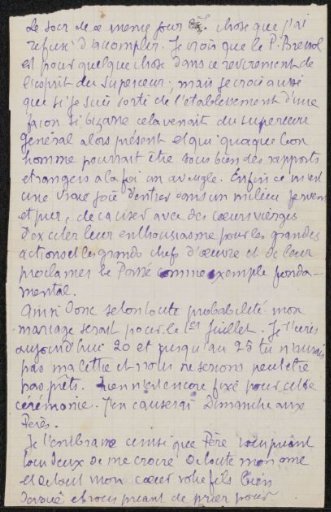 Le soir de ce même jour chose que j'ai
refusé d'accomplir. Je crois que le P. 
est pour quelque chose dans ce revirement de
l'esprit du Supérieur; mais je crois aussi
que si je suis sorti de l'établissement d'une
façon si bizarre cela venait du supérieur
général alors présent et qui quoique bon
homme pourrait être sous bien des rapports
étrangers à la foi un aveugle. Enfin ce m'est
une vraie joie d'entrer dans un milieu jeune
et pur, de causer avec des cœurs vierges
D'exciter leur enthousiasme pour les grandes
actions et les grands chefs d'œuvre et de leur
proclamer le Passé comme exemple fonda-
mental.
Ainsi Donc selon toute probabilité mon
mariage serait pour le 1er Juillet. Je t'écris
aujourd'hui 20 et jusqu'au 25 tu n'aurais
pas ma lettre et nous ne serions peut être
pas prêts. Rien n'est encore fixé pour cette
cérémonie. J'en causerai Dimanche aux
Pères.
Je t'embrasse ainsi que Père vous priant
tous deux de me croire De toute mon âme
et de tout mon cœur votre fils bien
Dévoué et vous priant de prier pour